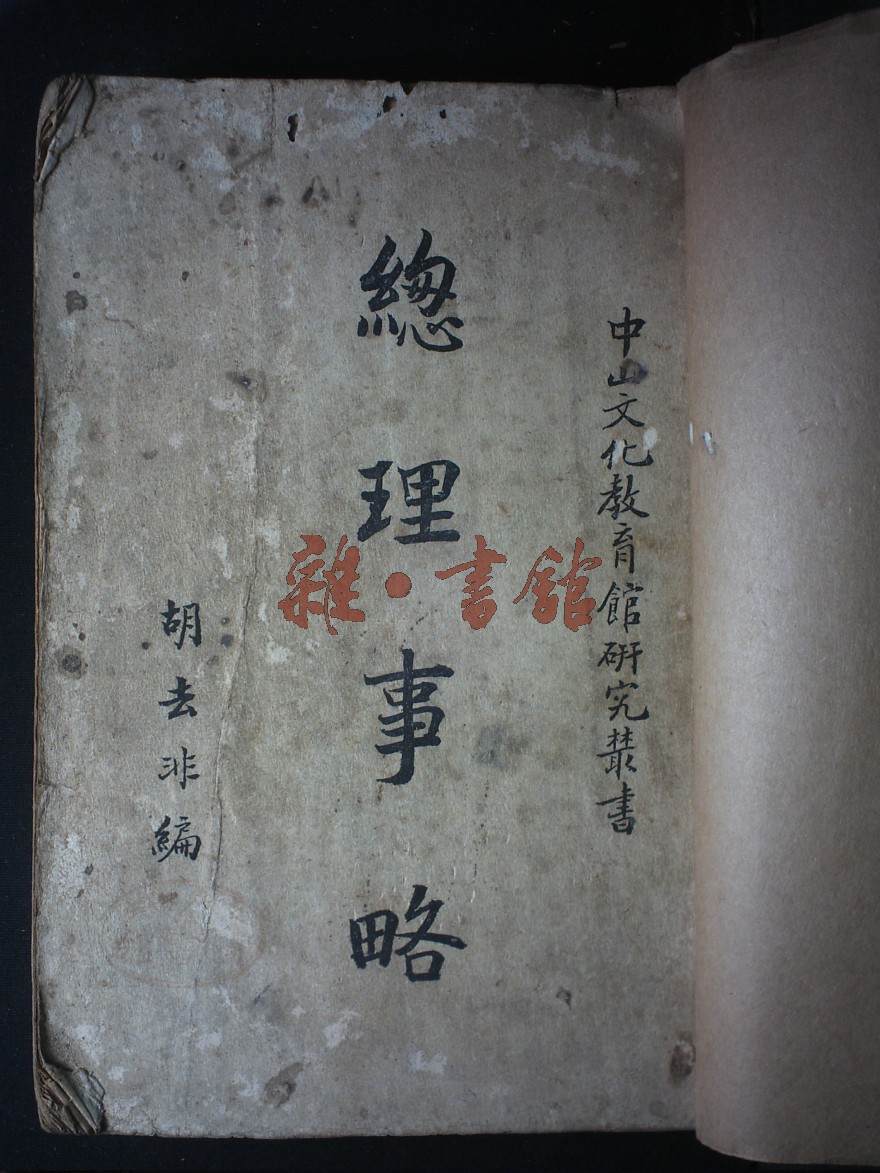 中山文化教育館研究叢書
總理事略
胡去非編
雜·書館